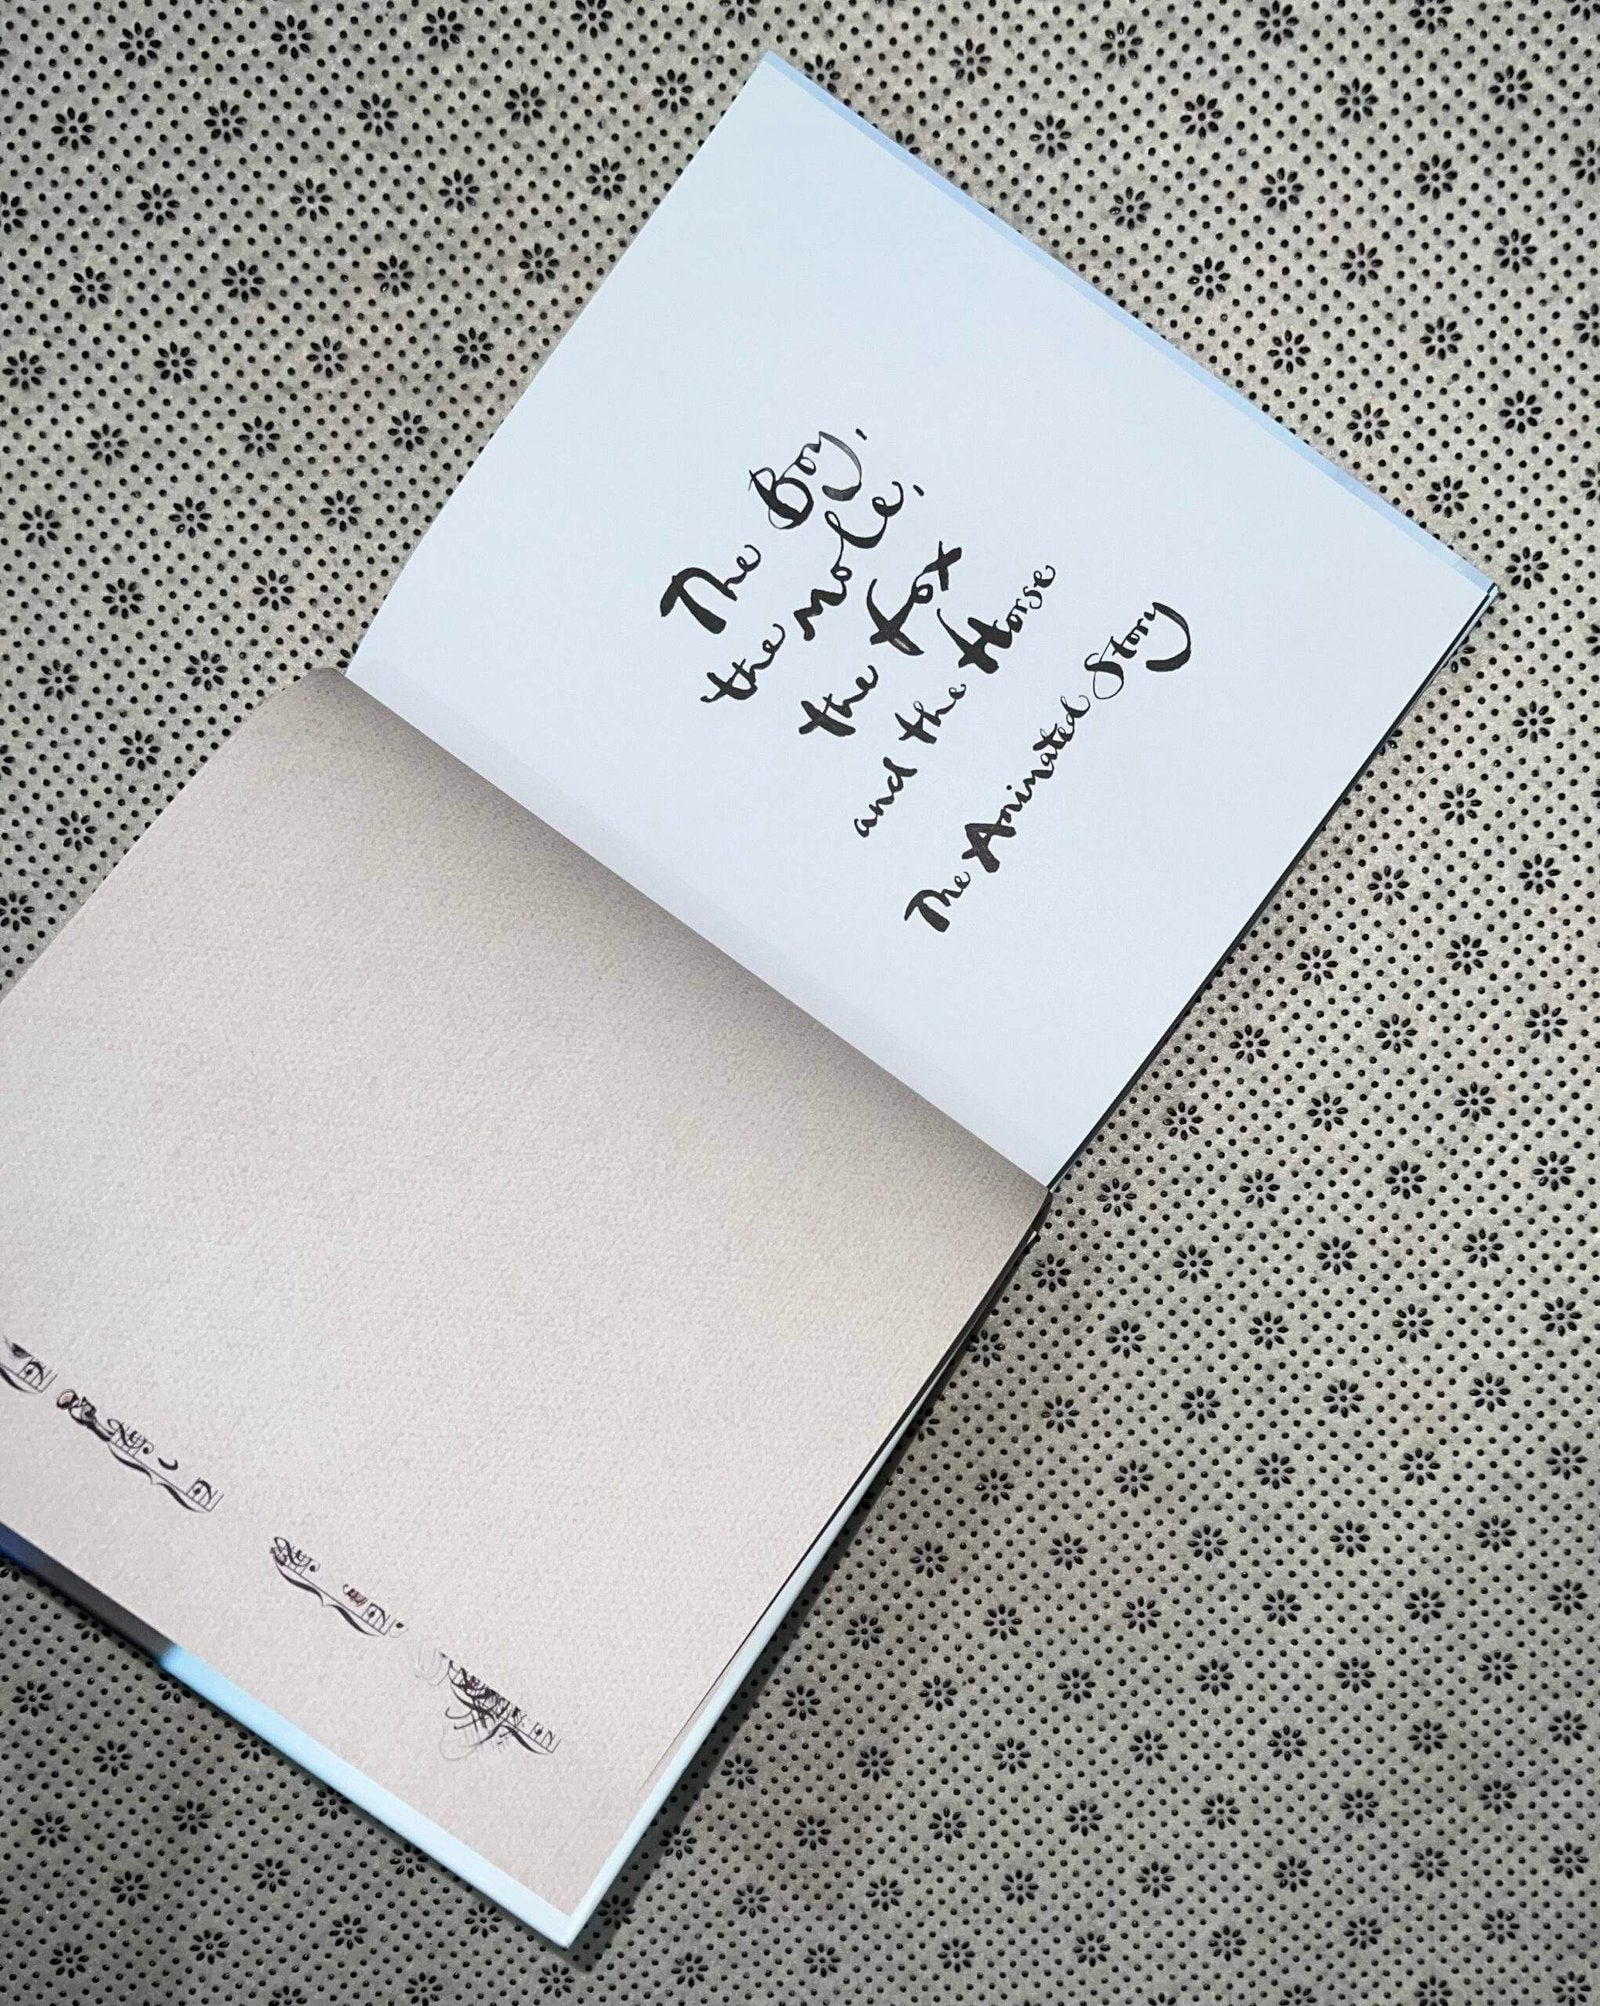 The Boy,
the mole,
the Fox
and the Horse
The Animated Story